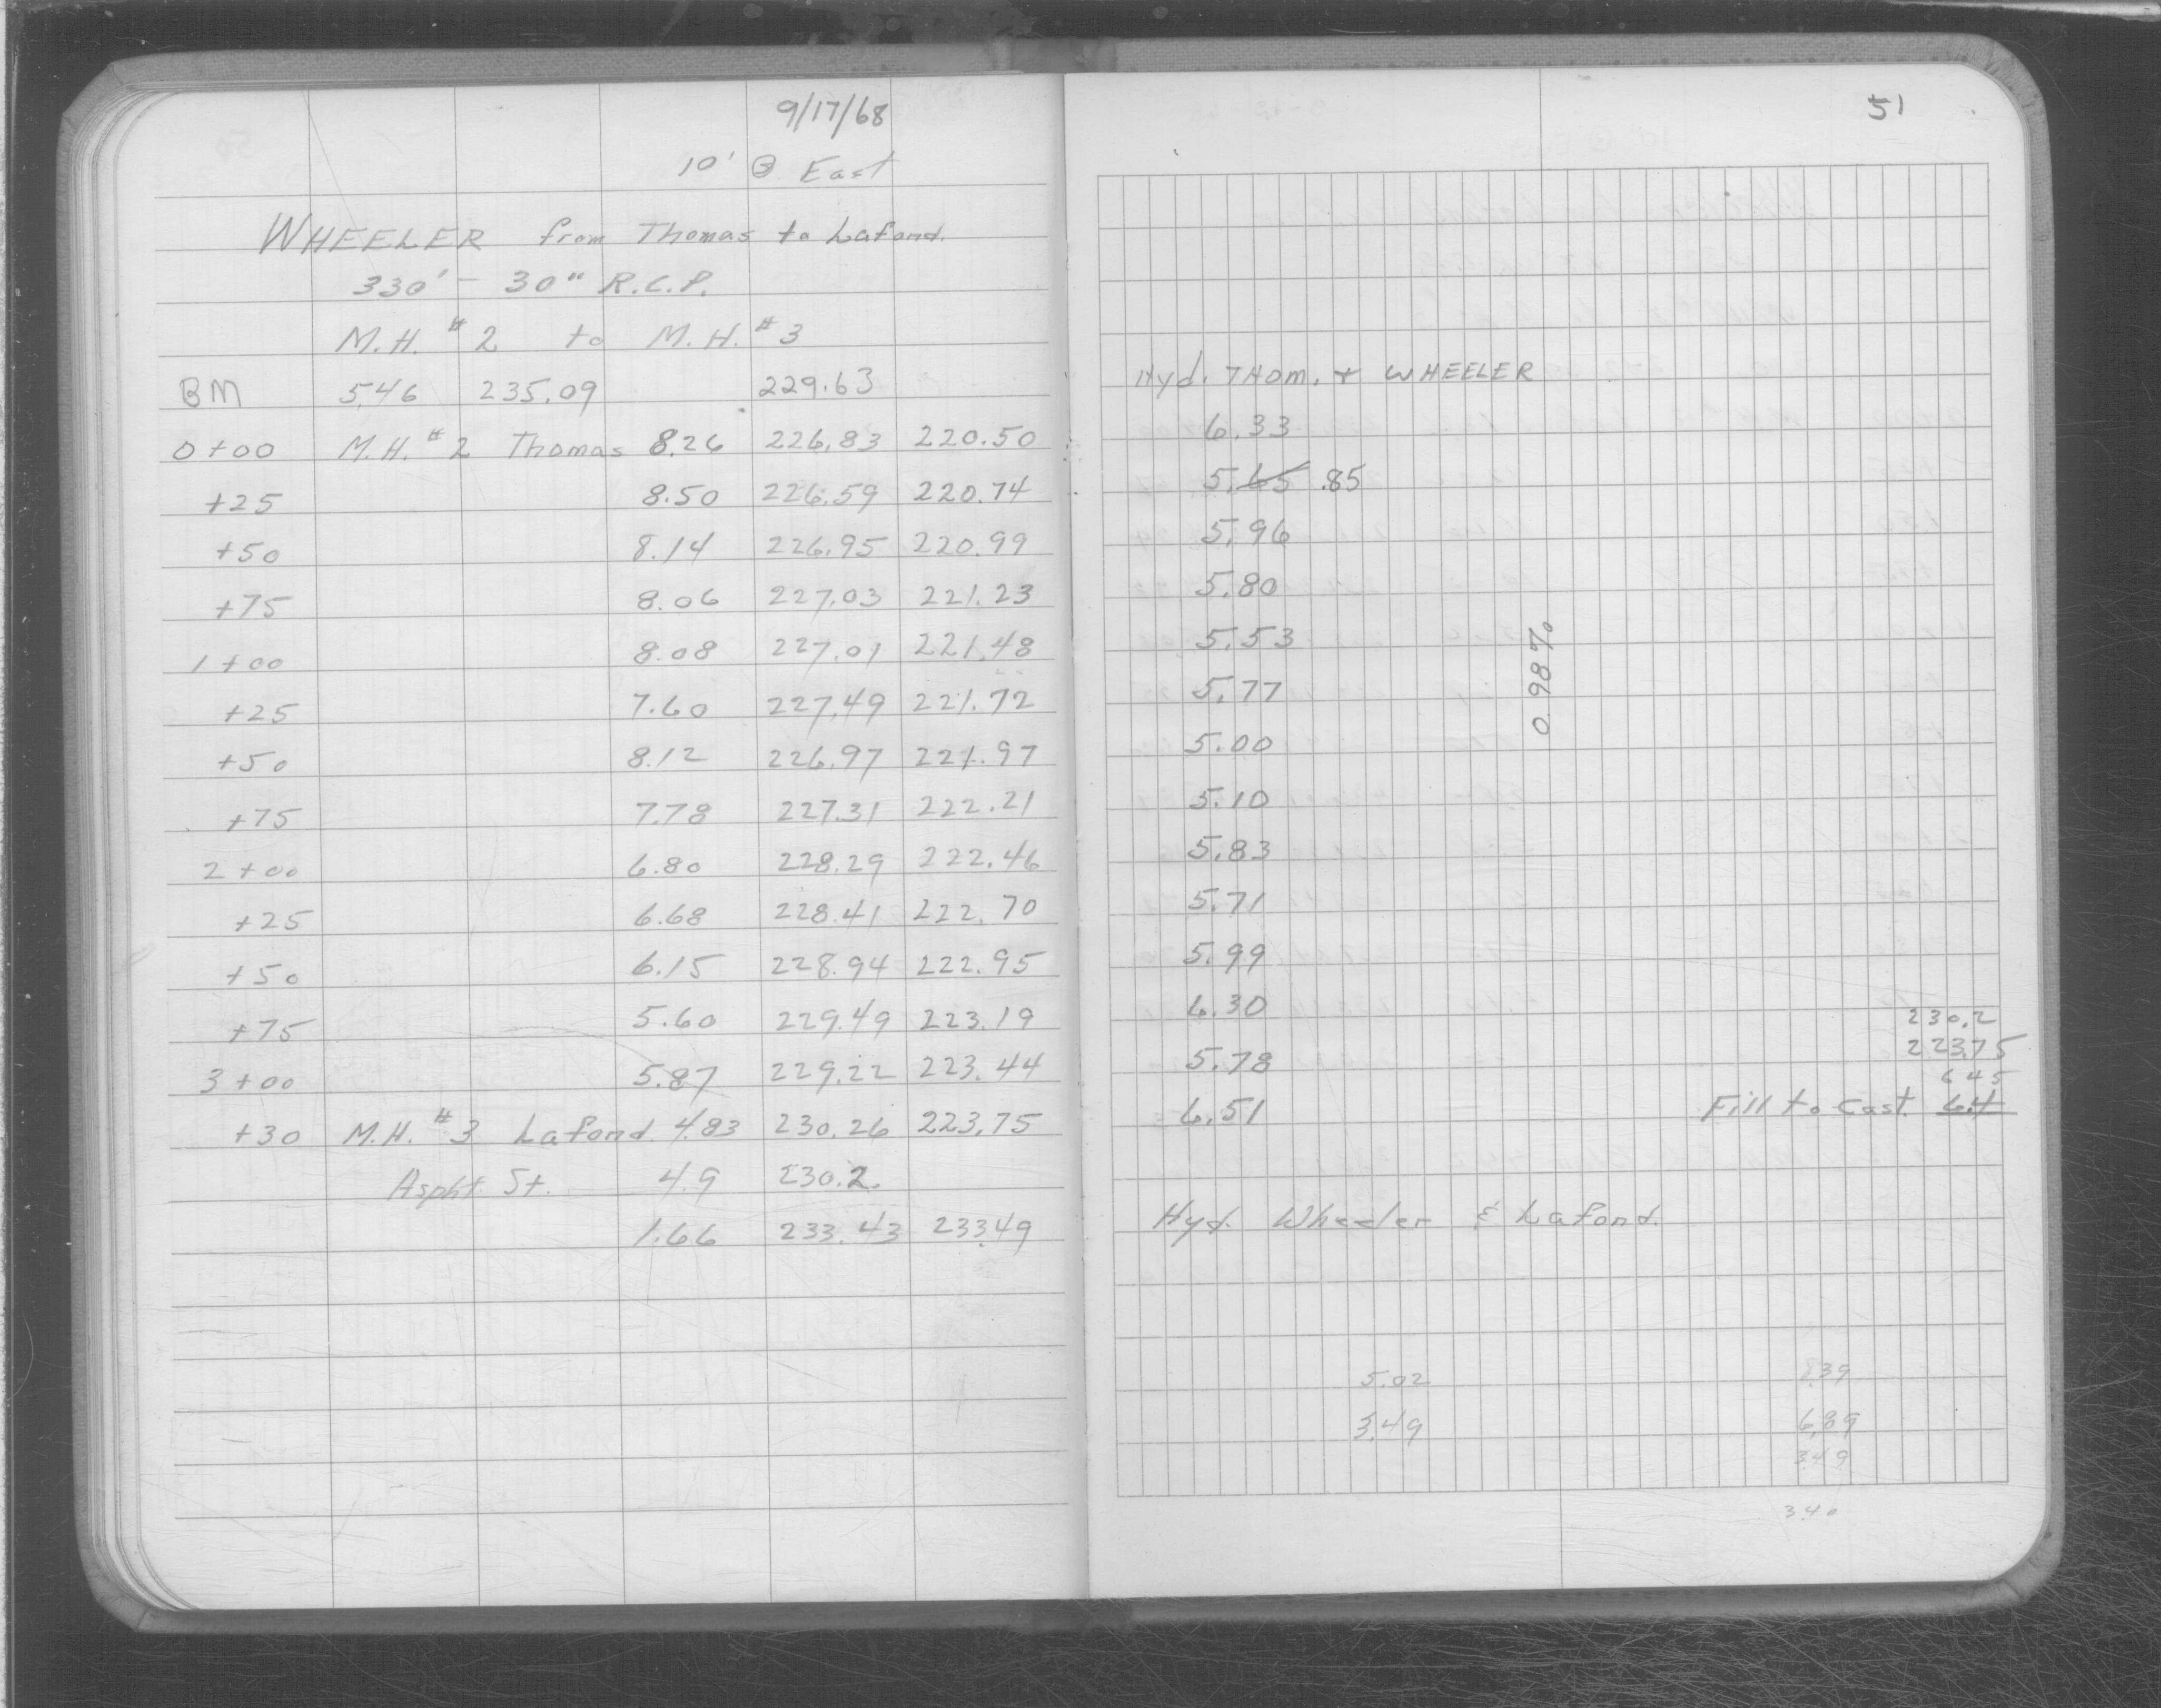 9/17/68
10' @ East
WHEELER from Thomas to Lafond.
330' - 30" R.C.P.
M.H. #2 to M.H. #3
BM 5.46 235.09 229.63
0+00 M.H. #2 Thomas 8.26 226.83 220.50
+25 8.50 226.59 220.74
+50 8.14 226.95 220.99
+75 8.06 227.03 221.23
1+00 8.08 227.01 221.48
+25 7.60 227.49 221.72
+50 8.12 226.97 221.97
+75 7.78 227.31 222.21
2+00 6.80 228.29 222.46
+25 6.68 228.41 222.70
+50 6.15 228.94 222.95
+75 5.60 229.49 223.19
3+00 5.87 229.22 223.44
+30 M.H. #3 Lafond. 4.83 230.26 223.75
Aspht. St. 4.9 230.2.
1.66 233.43 233.49
51
Hyd. THOM. + WHEELER
6.33
5.65 .85
5.96
5.80
5.53
5.77
5.00
5.10
5.83
5.71
5.99
6.30
5.78
6.51
0.98%
230.2
223.75
6 45
Fill to Cast. 6.4
Hyd. Wheeler & Lafond.
5.02 8.39
3.49 6.89
3.49
3.40